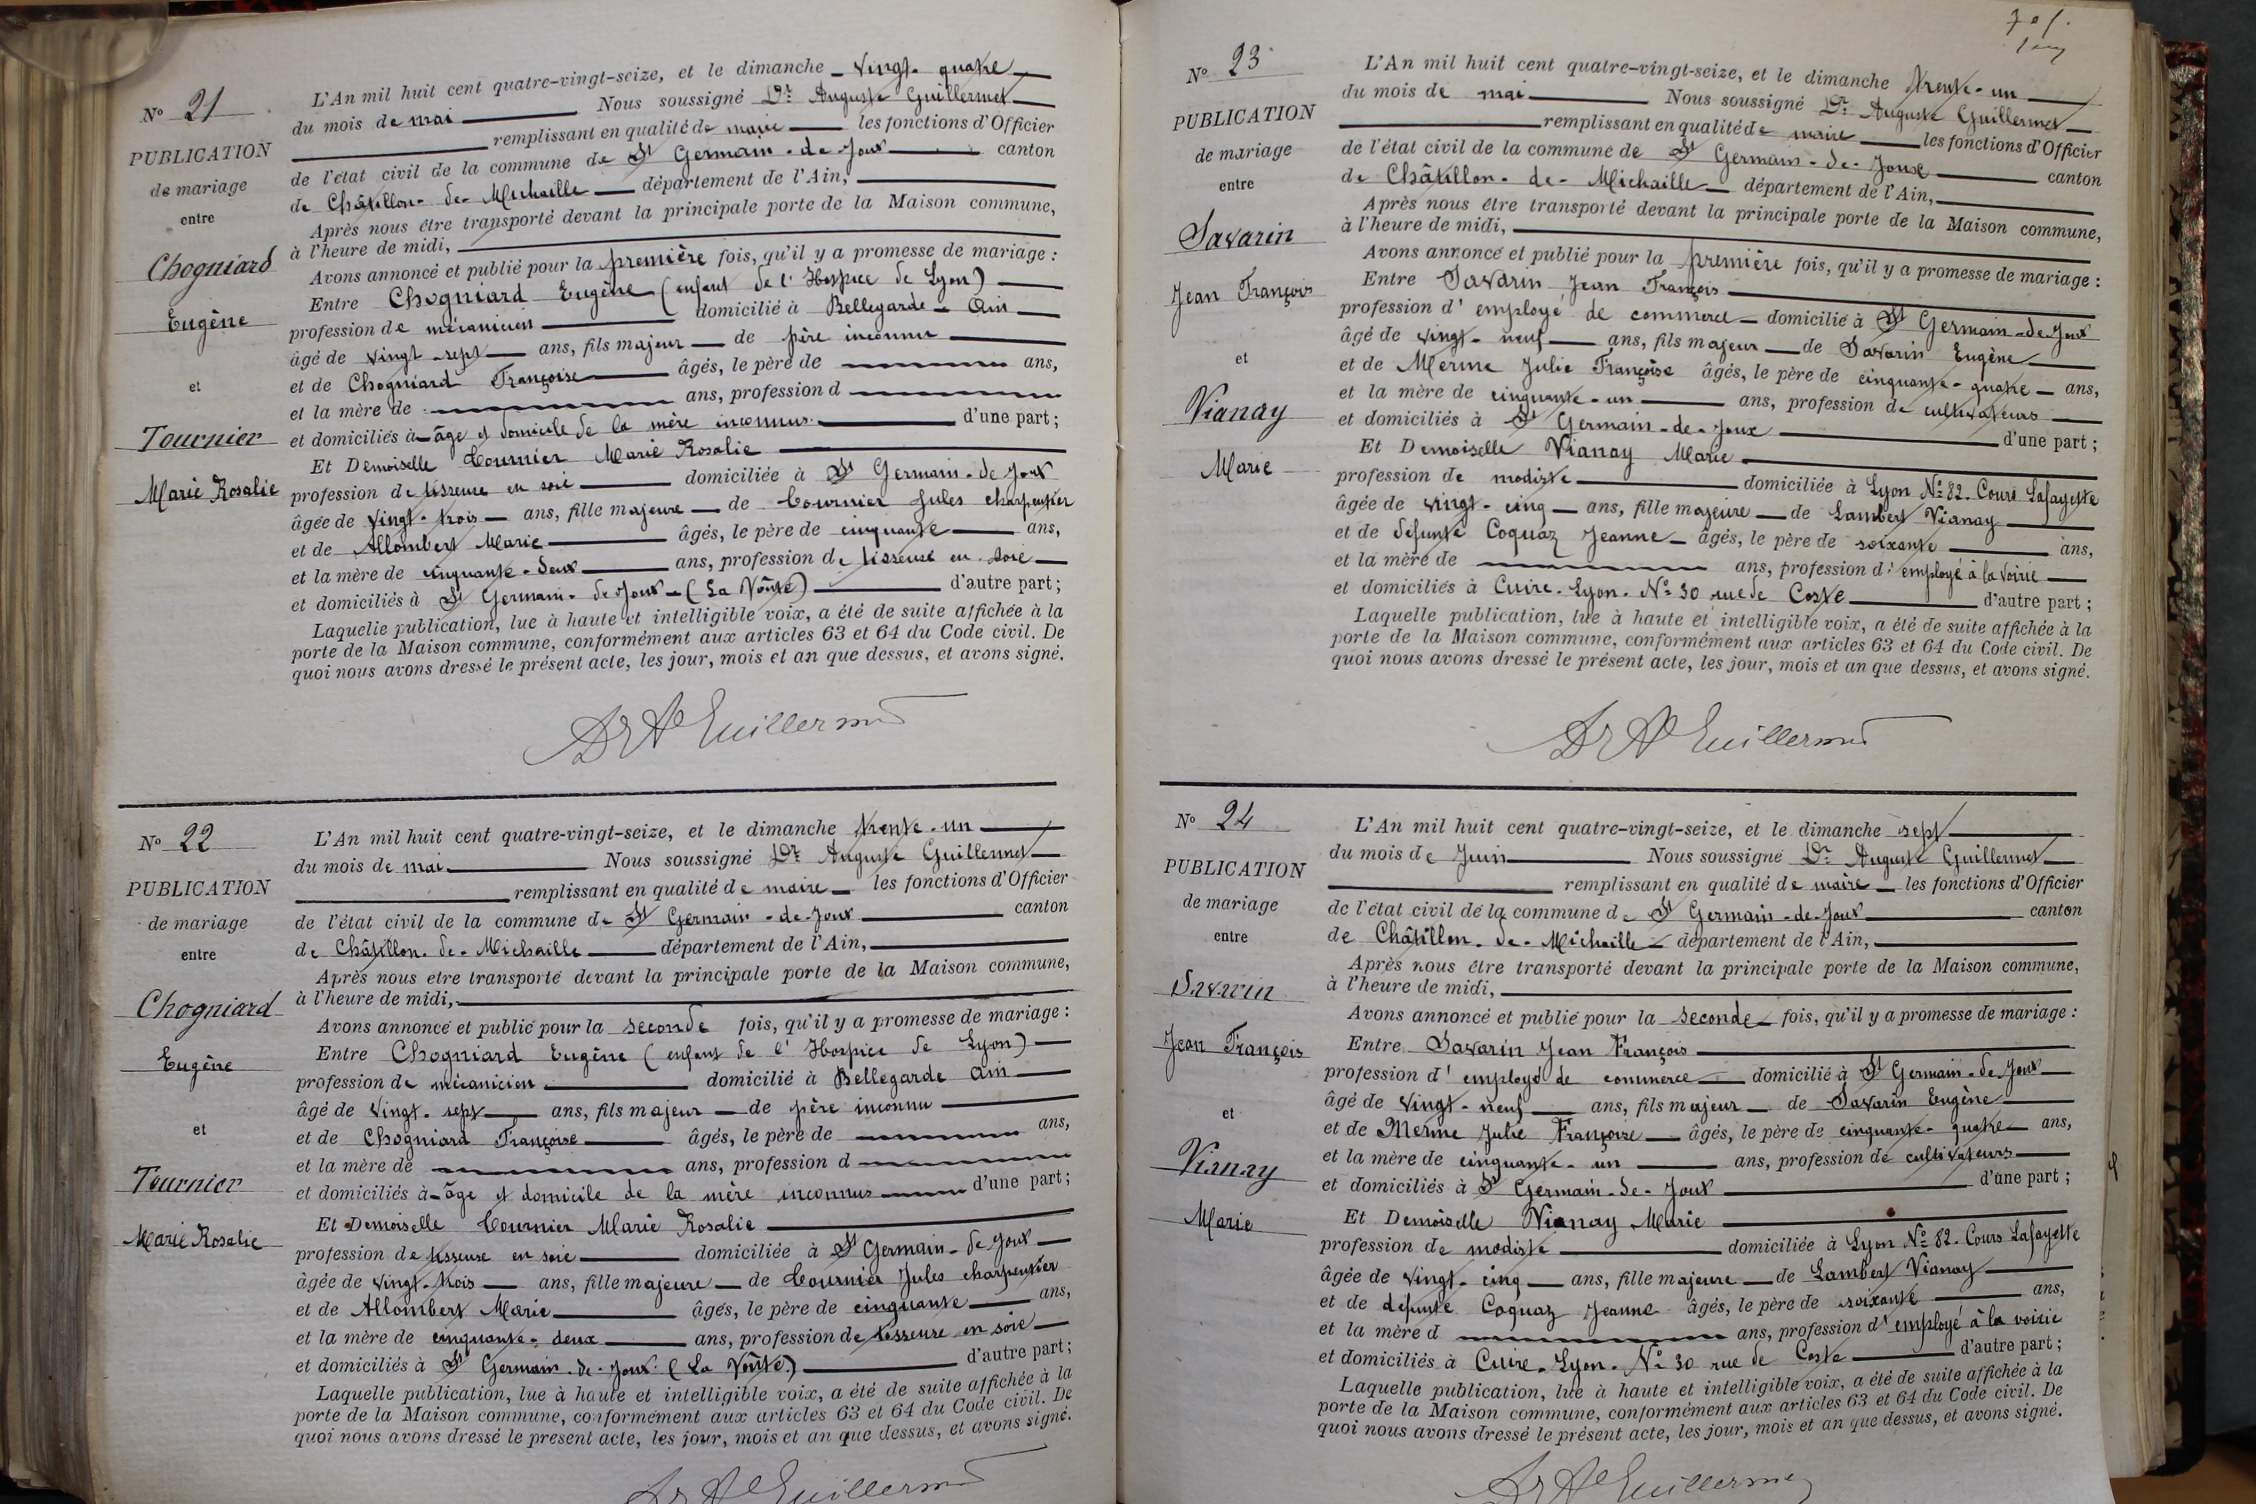 No 21
PUBLICATION
de mariage
entre
Chogniard
Eugène
et
Tournier
Marie Rosalie
L'An mil huit cent quatre-vingt-seize, et le dimanche vingt-quatre
du mois de mai Nous soussigné Dr Auguste Guillermet
remplissant en qualité de maire les fonctions d'Officier
de l'état civil de la commune de St Germain-de-Joux canton
de Châtillon-de-Michaille département de l'Ain,
Après nous être transporté devant la principale porte de la Maison commune,
à l'heure de midi,
Avons annoncé et publié pour la première fois, qu'il y a promesse de mariage :
Entre Chogniard Eugène (enfant de l'Hospice de Lyon)
profession de mécanicien domicilié à Bellegarde - Ain
âgé de vingt-sept ans, fils majeur de père inconnu
et de Chogniard Françoise âgés, le père de ans,
et la mère de ans, profession d
et domiciliés à âge et domicile de la mère inconnus d'une part ;
Et Demoiselle Tournier Marie Rosalie
profession de tisseuse en soie domiciliée à St Germain-de-Joux
âgée de vingt-trois ans, fille majeure de Tournier Jules charpentier
et de Allombert Marie âgés, le père de cinquante ans,
et la mère de cinquante-deux ans, profession de tisseuse en soie
et domiciliés à St Germain-de-Joux (La Voûte) d'autre part ;
Laquelle publication, lue à haute et intelligible voix, a été de suite affichée à la
porte de la Maison commune, conformément aux articles 63 et 64 du Code civil. De
quoi nous avons dressé le présent acte, les jour, mois et an que dessus, et avons signé.
Dr Ate Guillermet
No 22
PUBLICATION
de mariage
entre
Chogniard
Eugène
et
Tournier
Marie Rosalie
L'An mil huit cent quatre-vingt-seize, et le dimanche trente-un
du mois de mai Nous soussigné Dr Auguste Guillermet
remplissant en qualité de maire les fonctions d'Officier
de l'état civil de la commune de St Germain-de-Joux canton
de Châtillon-de-Michaille département de l'Ain,
Après nous être transporté devant la principale porte de la Maison commune,
à l'heure de midi,
Avons annoncé et publié pour la seconde fois, qu'il y a promesse de mariage :
Entre Chogniard Eugène (enfant de l'Hospice de Lyon)
profession de mécanicien domicilié à Bellegarde Ain
âgé de vingt-sept ans, fils majeur de père inconnu
et de Chogniard Françoise âgés, le père de ans,
et la mère de ans, profession d
et domiciliés à âge et domicile de la mère inconnus d'une part ;
Et Demoiselle Tournier Marie Rosalie
profession de tisseuse en soie domiciliée à St Germain-de-Joux
âgée de vingt-trois ans, fille majeure de Tournier Jules charpentier
et de Allombert Marie âgés, le père de cinquante ans,
et la mère de cinquante-deux ans, profession de tisseuse en soie
et domiciliés à St Germain-de-Joux (La Voûte) d'autre part ;
Laquelle publication, lue à haute et intelligible voix, a été de suite affichée à la
porte de la Maison commune, conformément aux articles 63 et 64 du Code civil. De
quoi nous avons dressé le présent acte, les jour, mois et an que dessus, et avons signé.
Dr Ate Guillermet
No 23
PUBLICATION
de mariage
entre
Savarin
Jean François
et
Vianay
Marie
L'An mil huit cent quatre-vingt-seize, et le dimanche trente-un
du mois de mai Nous soussigné Dr Auguste Guillermet
remplissant en qualité de maire les fonctions d'Officier
de l'état civil de la commune de St Germain-de-Joux canton
de Châtillon-de-Michaille département de l'Ain,
Après nous être transporté devant la principale porte de la Maison commune,
à l'heure de midi,
Avons annoncé et publié pour la première fois, qu'il y a promesse de mariage :
Entre Savarin Jean François
profession d'employé de commerce domicilié à St Germain-de-Joux
âgé de vingt-neuf ans, fils majeur de Savarin Eugène
et de Merme Julie Françoise âgés, le père de cinquante-quatre ans,
et la mère de cinquante-un ans, profession de cultivateurs
et domiciliés à St Germain-de-Joux d'une part ;
Et Demoiselle Vianay Marie
profession de modiste domiciliée à Lyon No 82. Cours Lafayette
âgée de vingt-cinq ans, fille majeure de Lambert Vianay
et de défunte Coquaz Jeanne âgés, le père de soixante ans,
et la mère de ans, profession d'employé à la voirie
et domiciliés à Cuire-Lyon. No 30 rue de Coste d'autre part ;
Laquelle publication, lue à haute et intelligible voix, a été de suite affichée à la
porte de la Maison commune, conformément aux articles 63 et 64 du Code civil. De
quoi nous avons dressé le présent acte, les jour, mois et an que dessus, et avons signé.
Dr Ate Guillermet
No 24
PUBLICATION
de mariage
entre
Savarin
Jean François
et
Vianay
Marie
L'An mil huit cent quatre-vingt-seize, et le dimanche sept
du mois de Juin Nous soussigné Dr Auguste Guillermet
remplissant en qualité de maire les fonctions d'Officier
de l'état civil de la commune de St Germain-de-Joux canton
de Châtillon-de-Michaille département de l'Ain,
Après nous être transporté devant la principale porte de la Maison commune,
à l'heure de midi,
Avons annoncé et publié pour la seconde fois, qu'il y a promesse de mariage :
Entre Savarin Jean François
profession d'employé de commerce domicilié à St Germain-de-Joux
âgé de vingt-neuf ans, fils majeur de Savarin Eugène
et de Merme Julie Françoise âgés, le père de cinquante-quatre ans,
et la mère de cinquante-un ans, profession de cultivateurs
et domiciliés à St Germain-de-Joux d'une part ;
Et Demoiselle Vianay Marie
profession de modiste domiciliée à Lyon No 82. Cours Lafayette
âgée de vingt-cinq ans, fille majeure de Lambert Vianay
et de défunte Coquaz Jeanne âgés, le père de soixante ans,
et la mère d ans, profession d'employé à la voirie
et domiciliés à Cuire-Lyon. No 30 rue de Coste d'autre part ;
Laquelle publication, lue à haute et intelligible voix, a été de suite affichée à la
porte de la Maison commune, conformément aux articles 63 et 64 du Code civil. De
quoi nous avons dressé le présent acte, les jour, mois et an que dessus, et avons signé.
Dr Ate Guillermet